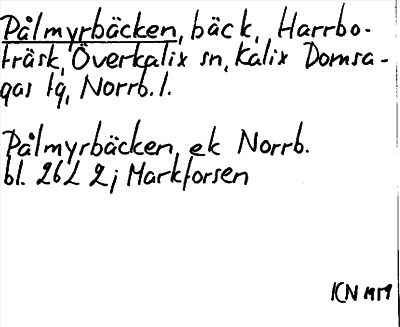 Pålmyrbäcken, bäck, Harrbo-
träsk, Överkalix sn, Kalix Domsa-
gas tg, Norrb. l.
Pålmyrbäcken, ek Norrb.
bl. 26L 2j Markforsen